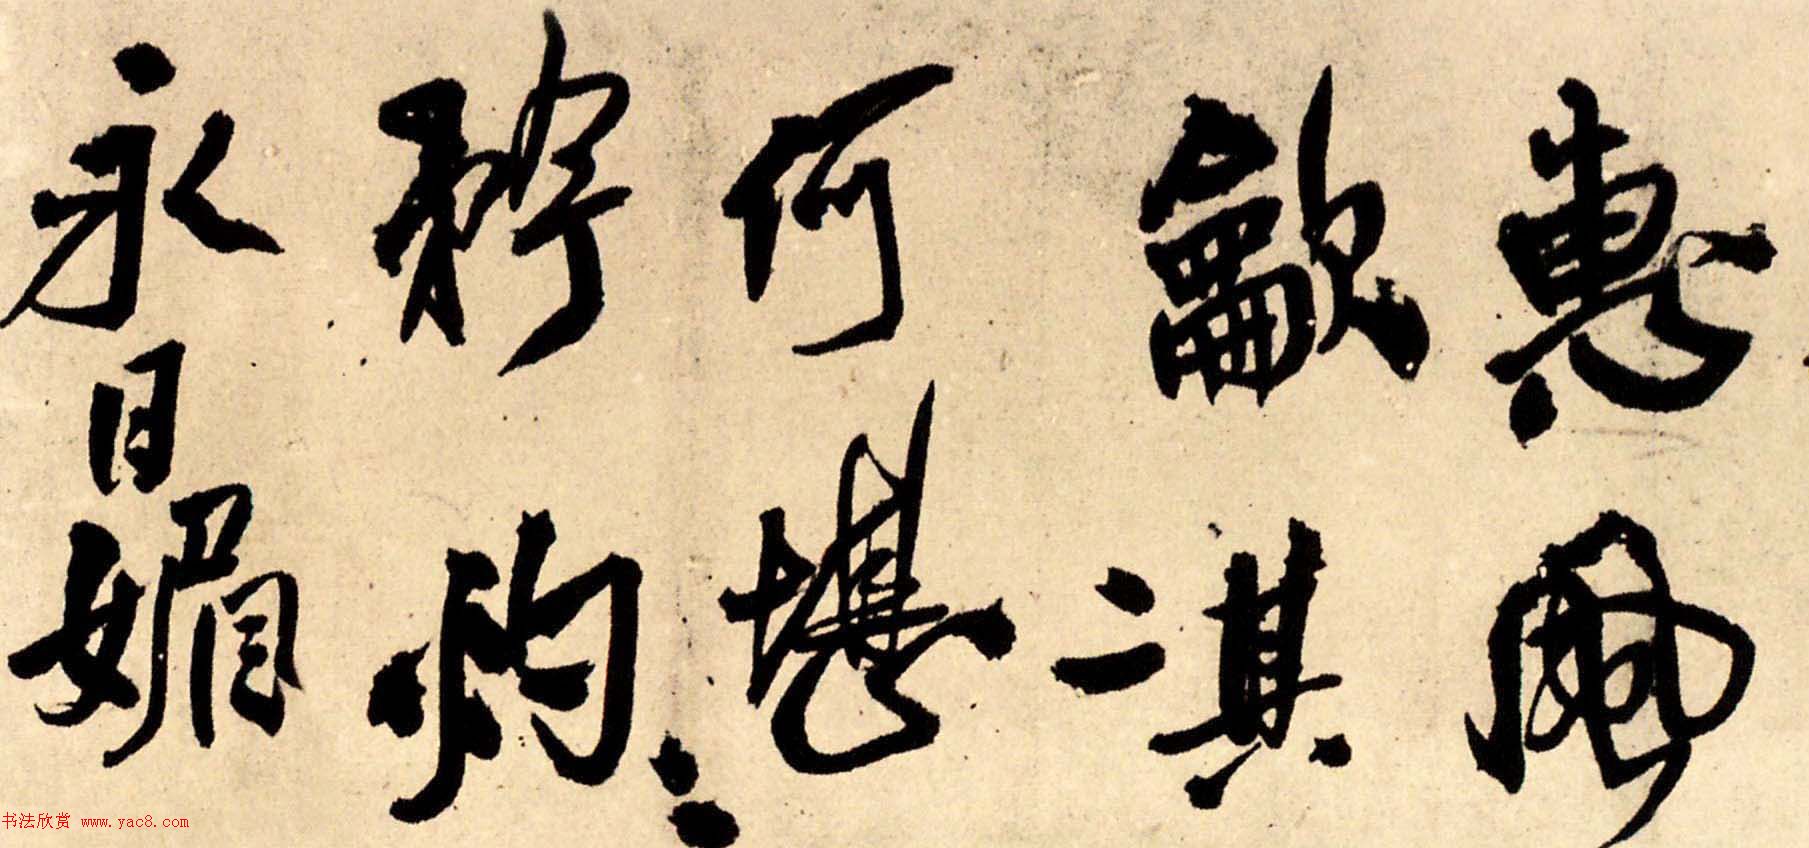 惠風
龡淇
何堪
矜灼〻
永日媚
书法欣赏 www.yac8.com